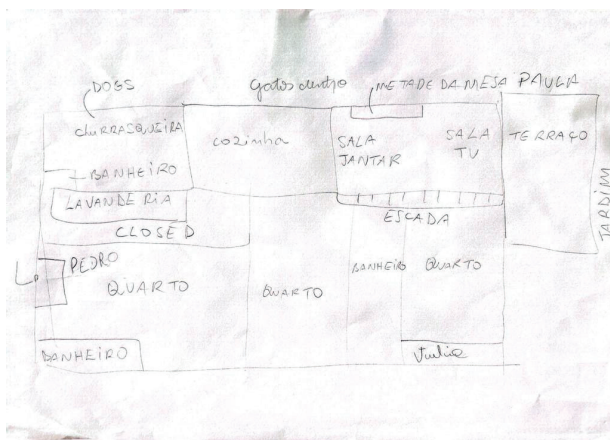 DOGS
Gatos dentro
METADE DA MESA PAULA
CHURRASQUEIRA
COZINHA
SALA
JANTAR
SALA
TV
TERRAÇO
BANHEIRO
LAVANDERIA
ESCADA
JARDIM
CLOSED
PEDRO
QUARTO
QUARTO
BANHEIRO
QUARTO
BANHEIRO
Julia